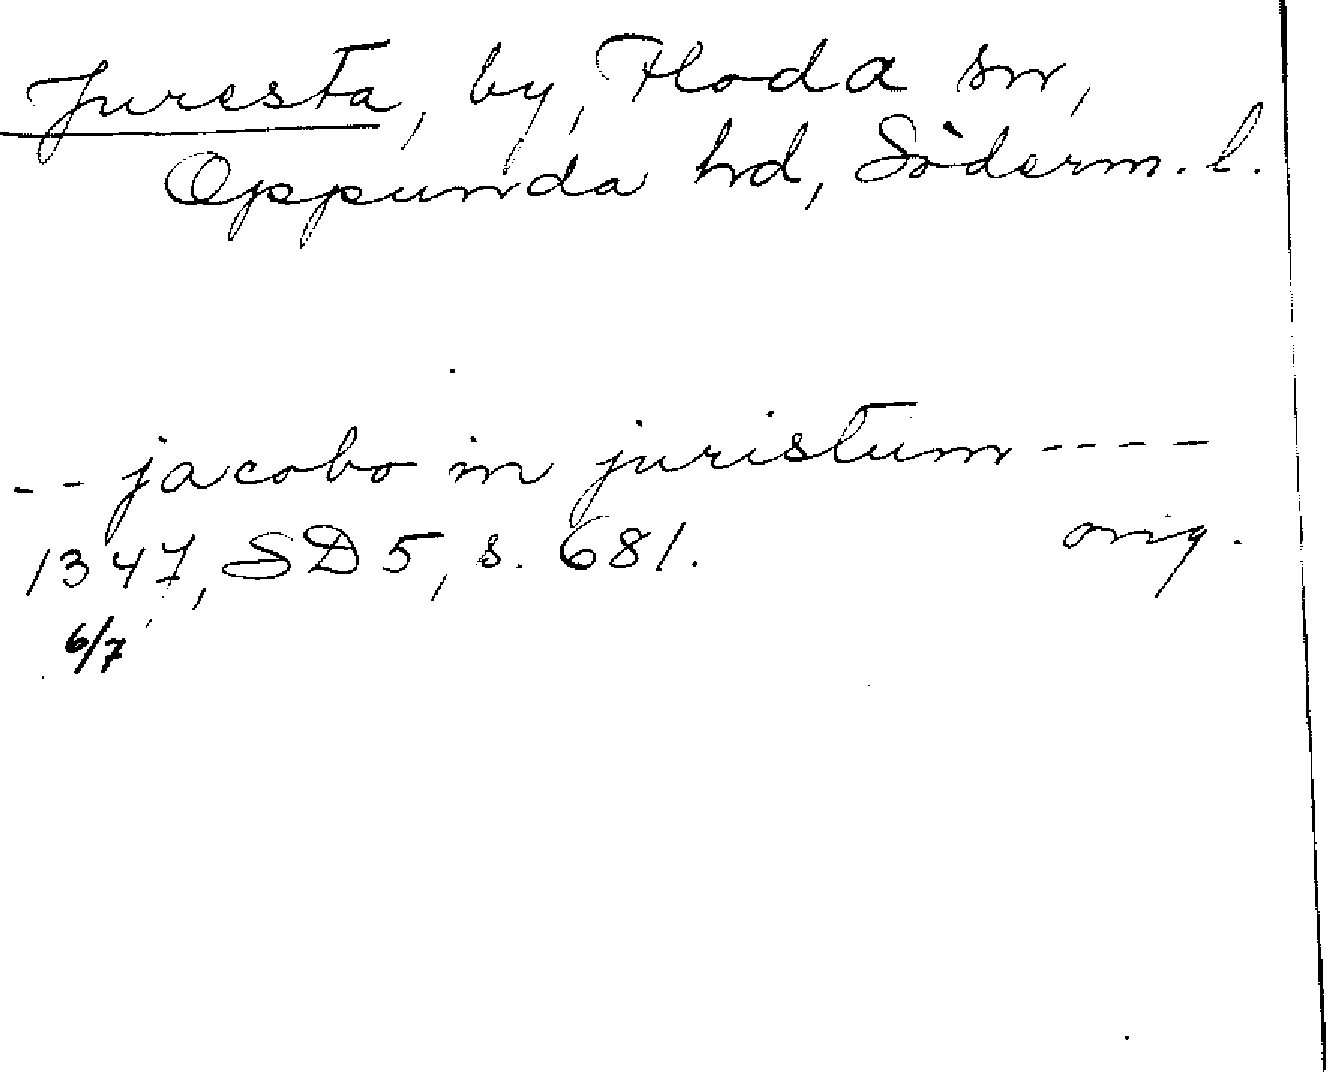 Juresta, by, Floda sn,
Oppunda hd, Söderm. l.
-- jacobo in juristum ----
1347, SD 5, s. 681. orig.
6/7